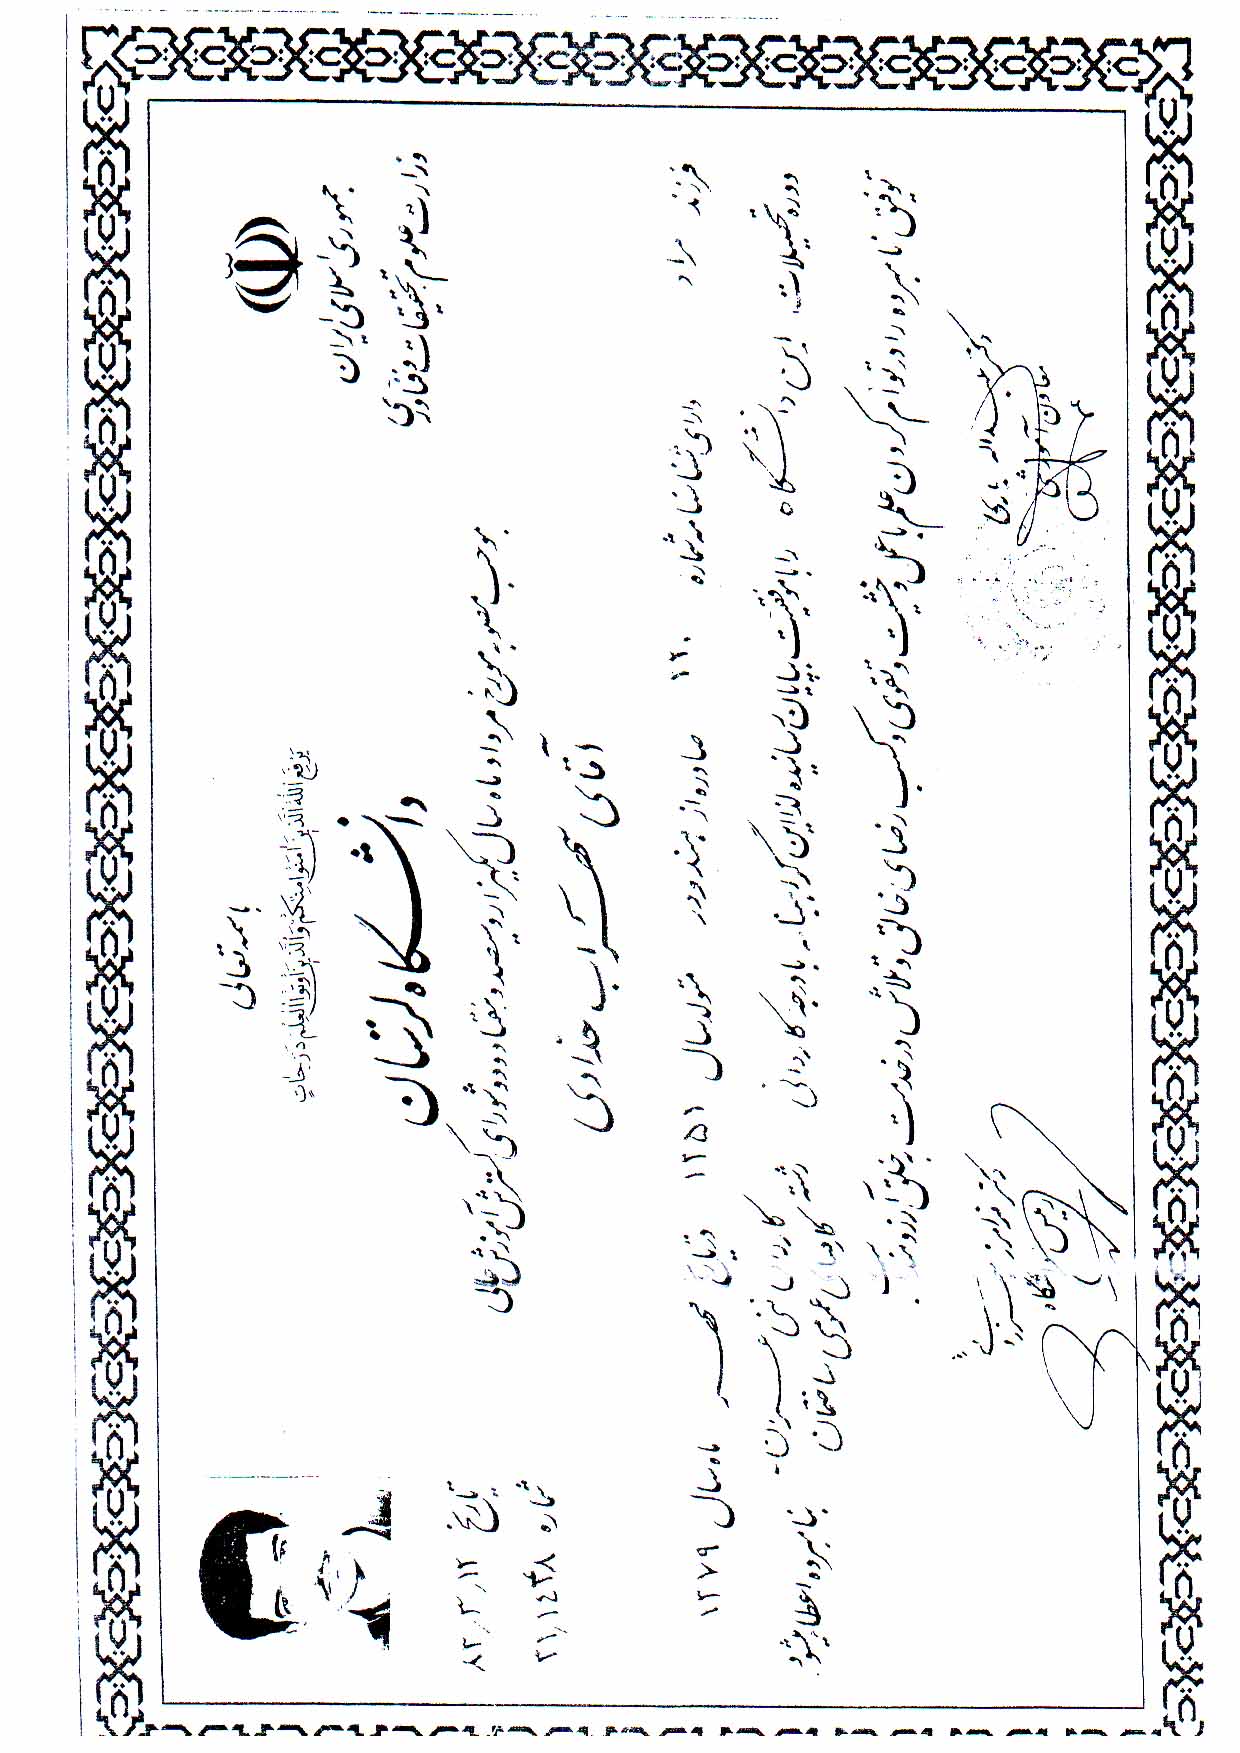 باسمه تعالی
یرفع الله الذین امنوا منکم والذین اوتوا العلم درجات
جمهوری اسلامی ایران
وزارت علوم تحقیقات و فناوری
دانشگاه لرستان
تاریخ ۸۲٫۳٫۱۲
شماره
بموجب مصوبه مورخ مرداد ماه سال یکهزار و سیصد و هفتاد و دو شورای گسترش آموزش عالی
آقای سهراب خدادی
فرزند مراد دارای شناسنامه شماره صادره از متولد سال ۱۳۵۱ در تاریخ مهر ماه سال ۱۳۷۹
دوره تحصیلات این دانشگاه را با موفقیت بپایان رسانیده لذا این گواهینامه با درجه کاردانی رشته کاردانی فنی عمران -
کارهای عمومی ساختمان بنامبرده اعطا میشود.
توفیق نامبرده را در توأم کردن علم با عمل و خشیت و تقوی و کسب رضای خالق و تلاش در خدمت به خلق آرزومند است.
دکتر یداله یاری
معاون آموزشی
دکتر فرامرز
رئیس دانشگاه